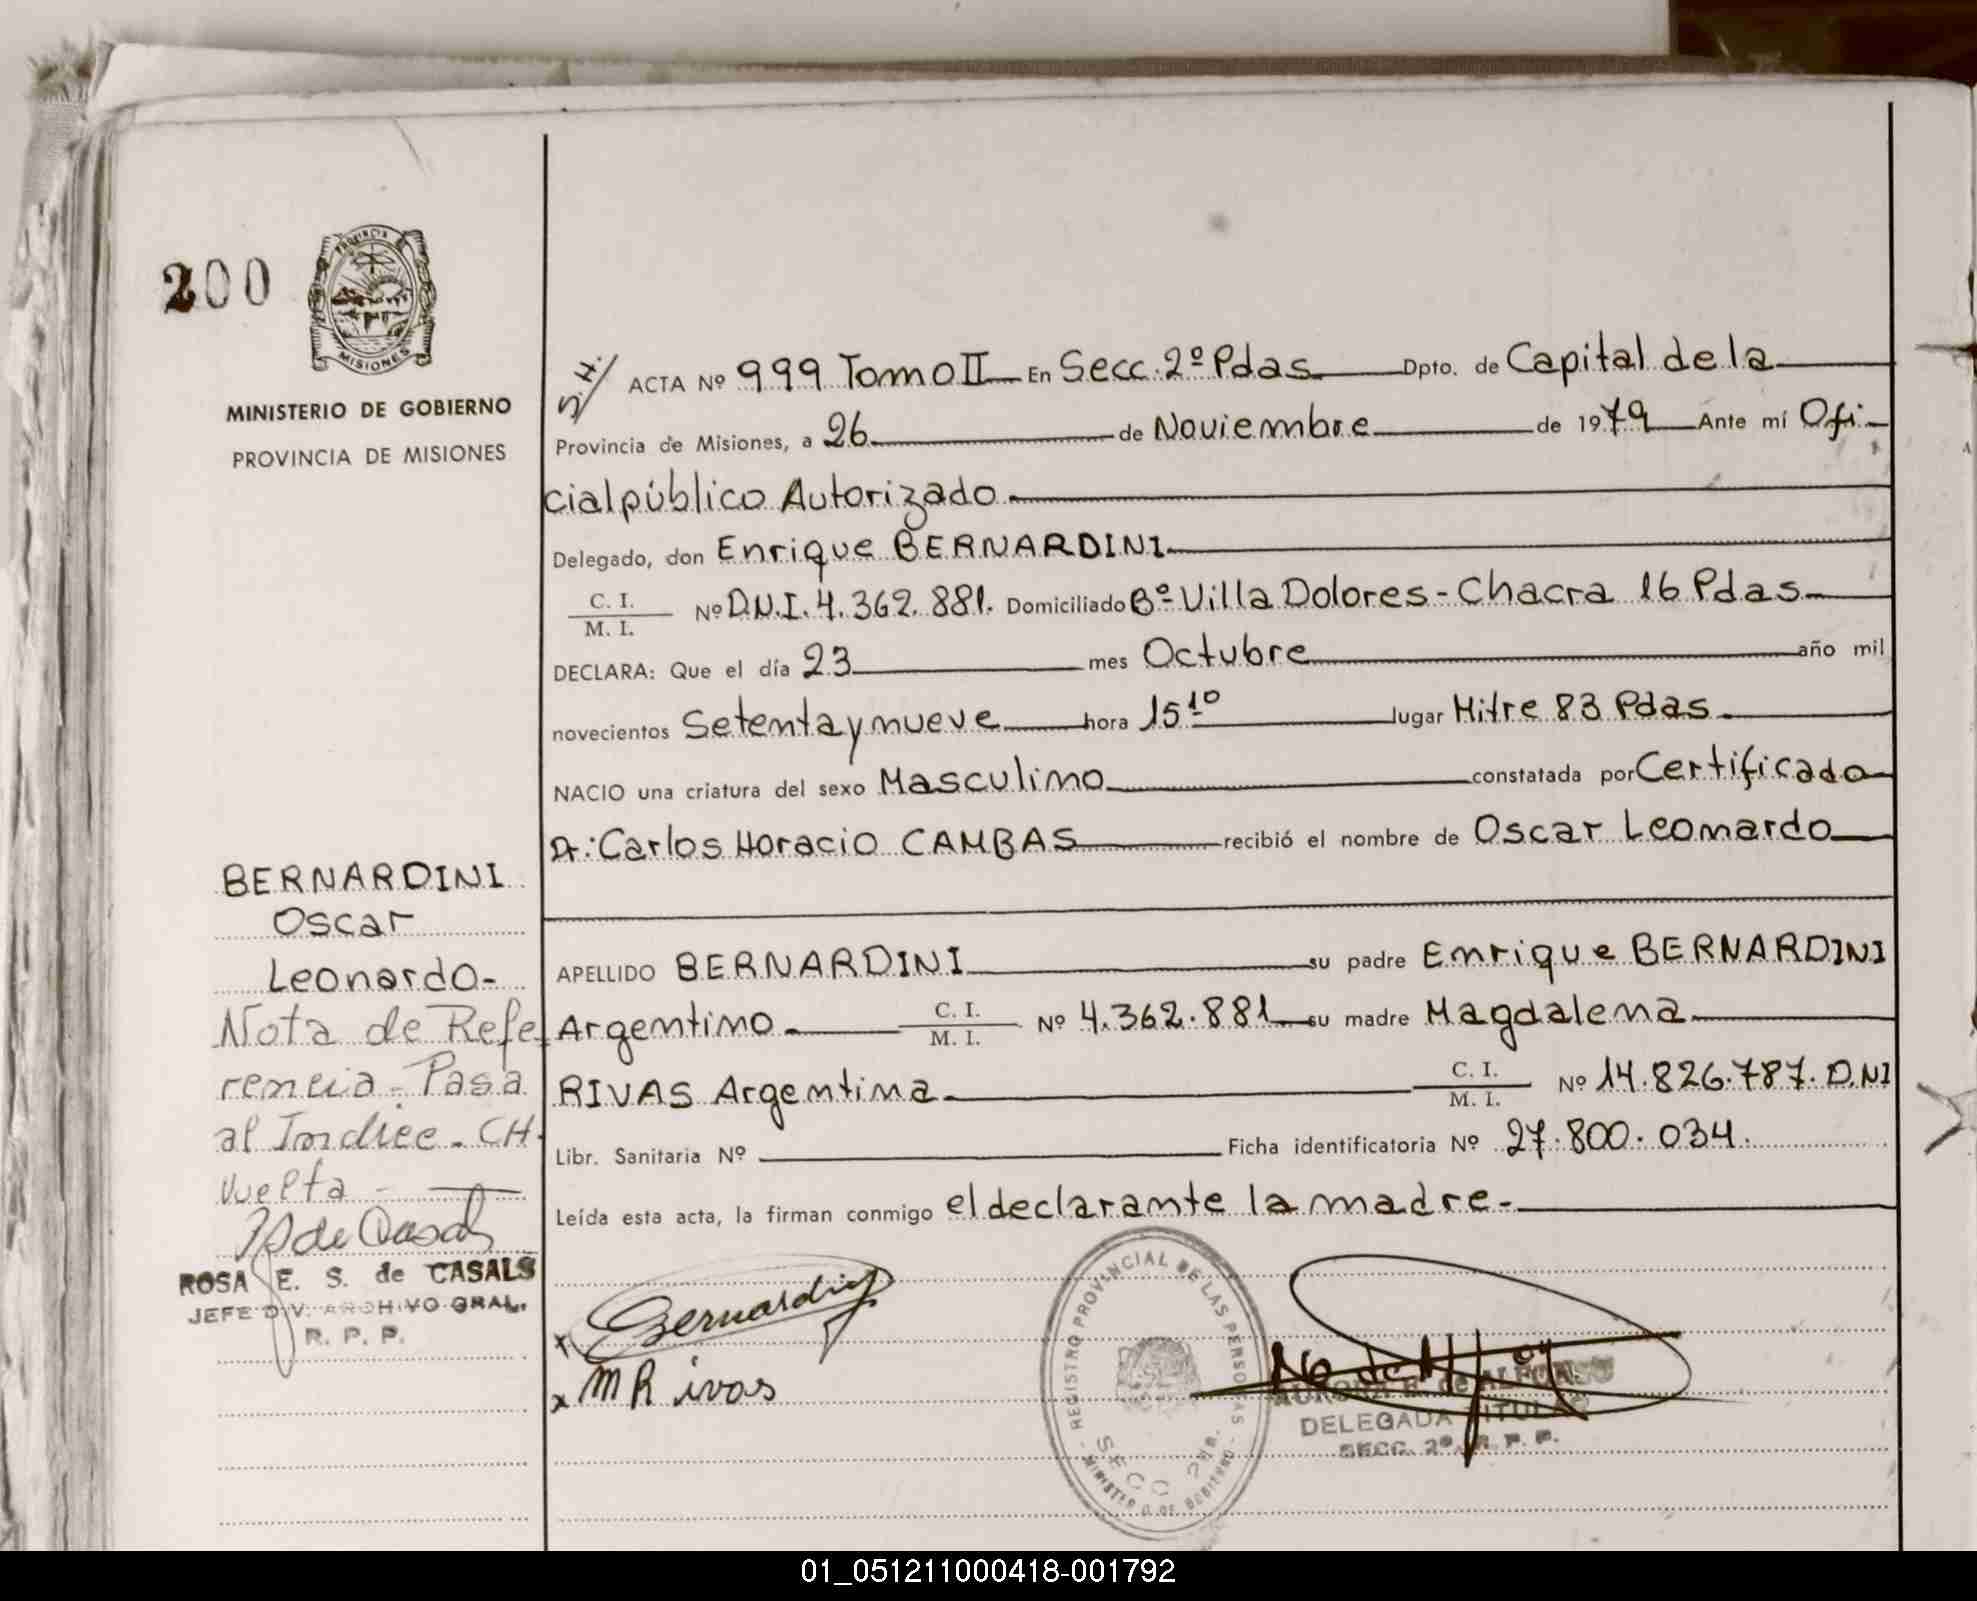 200
PROVINCIA DE
MISIONES
MINISTERIO DE GOBIERNO
PROVINCIA DE MISIONES
BERNARDINI
Oscar
Leonardo-
Nota de Refe-
rencia. Pasa
al Indice. CH.
Vuelta -
ROSA E. S. de CASALS
JEFE DIV. ARCHIVO GRAL.
R. P. P.
S.H./
ACTA Nº 999 Tomo II En Secc. 2º Pdas Dpto. de Capital de la
Provincia de Misiones, a 26 de Noviembre de 1979 Ante mí Ofi-
cial público Autorizado
Delegado, don Enrique BERNARDINI
C. I. / M. I. Nº D.N.I. 4.362.881. Domiciliado Bº Villa Dolores - Chacra 16 Pdas
DECLARA: Que el día 23 mes Octubre año mil
novecientos Setenta y nueve hora 15 10 lugar Mitre 83 Pdas
NACIO una criatura del sexo Masculino constatada por Certificado
Dr: Carlos Horacio CAMBAS recibió el nombre de Oscar Leonardo
APELLIDO BERNARDINI su padre Enrique BERNARDINI
Argentino C. I. / M. I. Nº 4.362.881 su madre Magdalena
RIVAS Argentina C. I. / M. I. Nº 14.826.787. D.NI
Libr. Sanitaria Nº Ficha identificatoria Nº 27.800.034.
Leída esta acta, la firman conmigo el declarante la madre-
x Bernardini
x M Rivas
REGISTRO PROVINCIAL DE LAS PERSONAS
MINISTERIO DE GOBIERNO
SECC 2
AURORA de ALFONSO
DELEGADA TITULAR
SECC. 2ª. R. P. P.
01_051211000418-001792